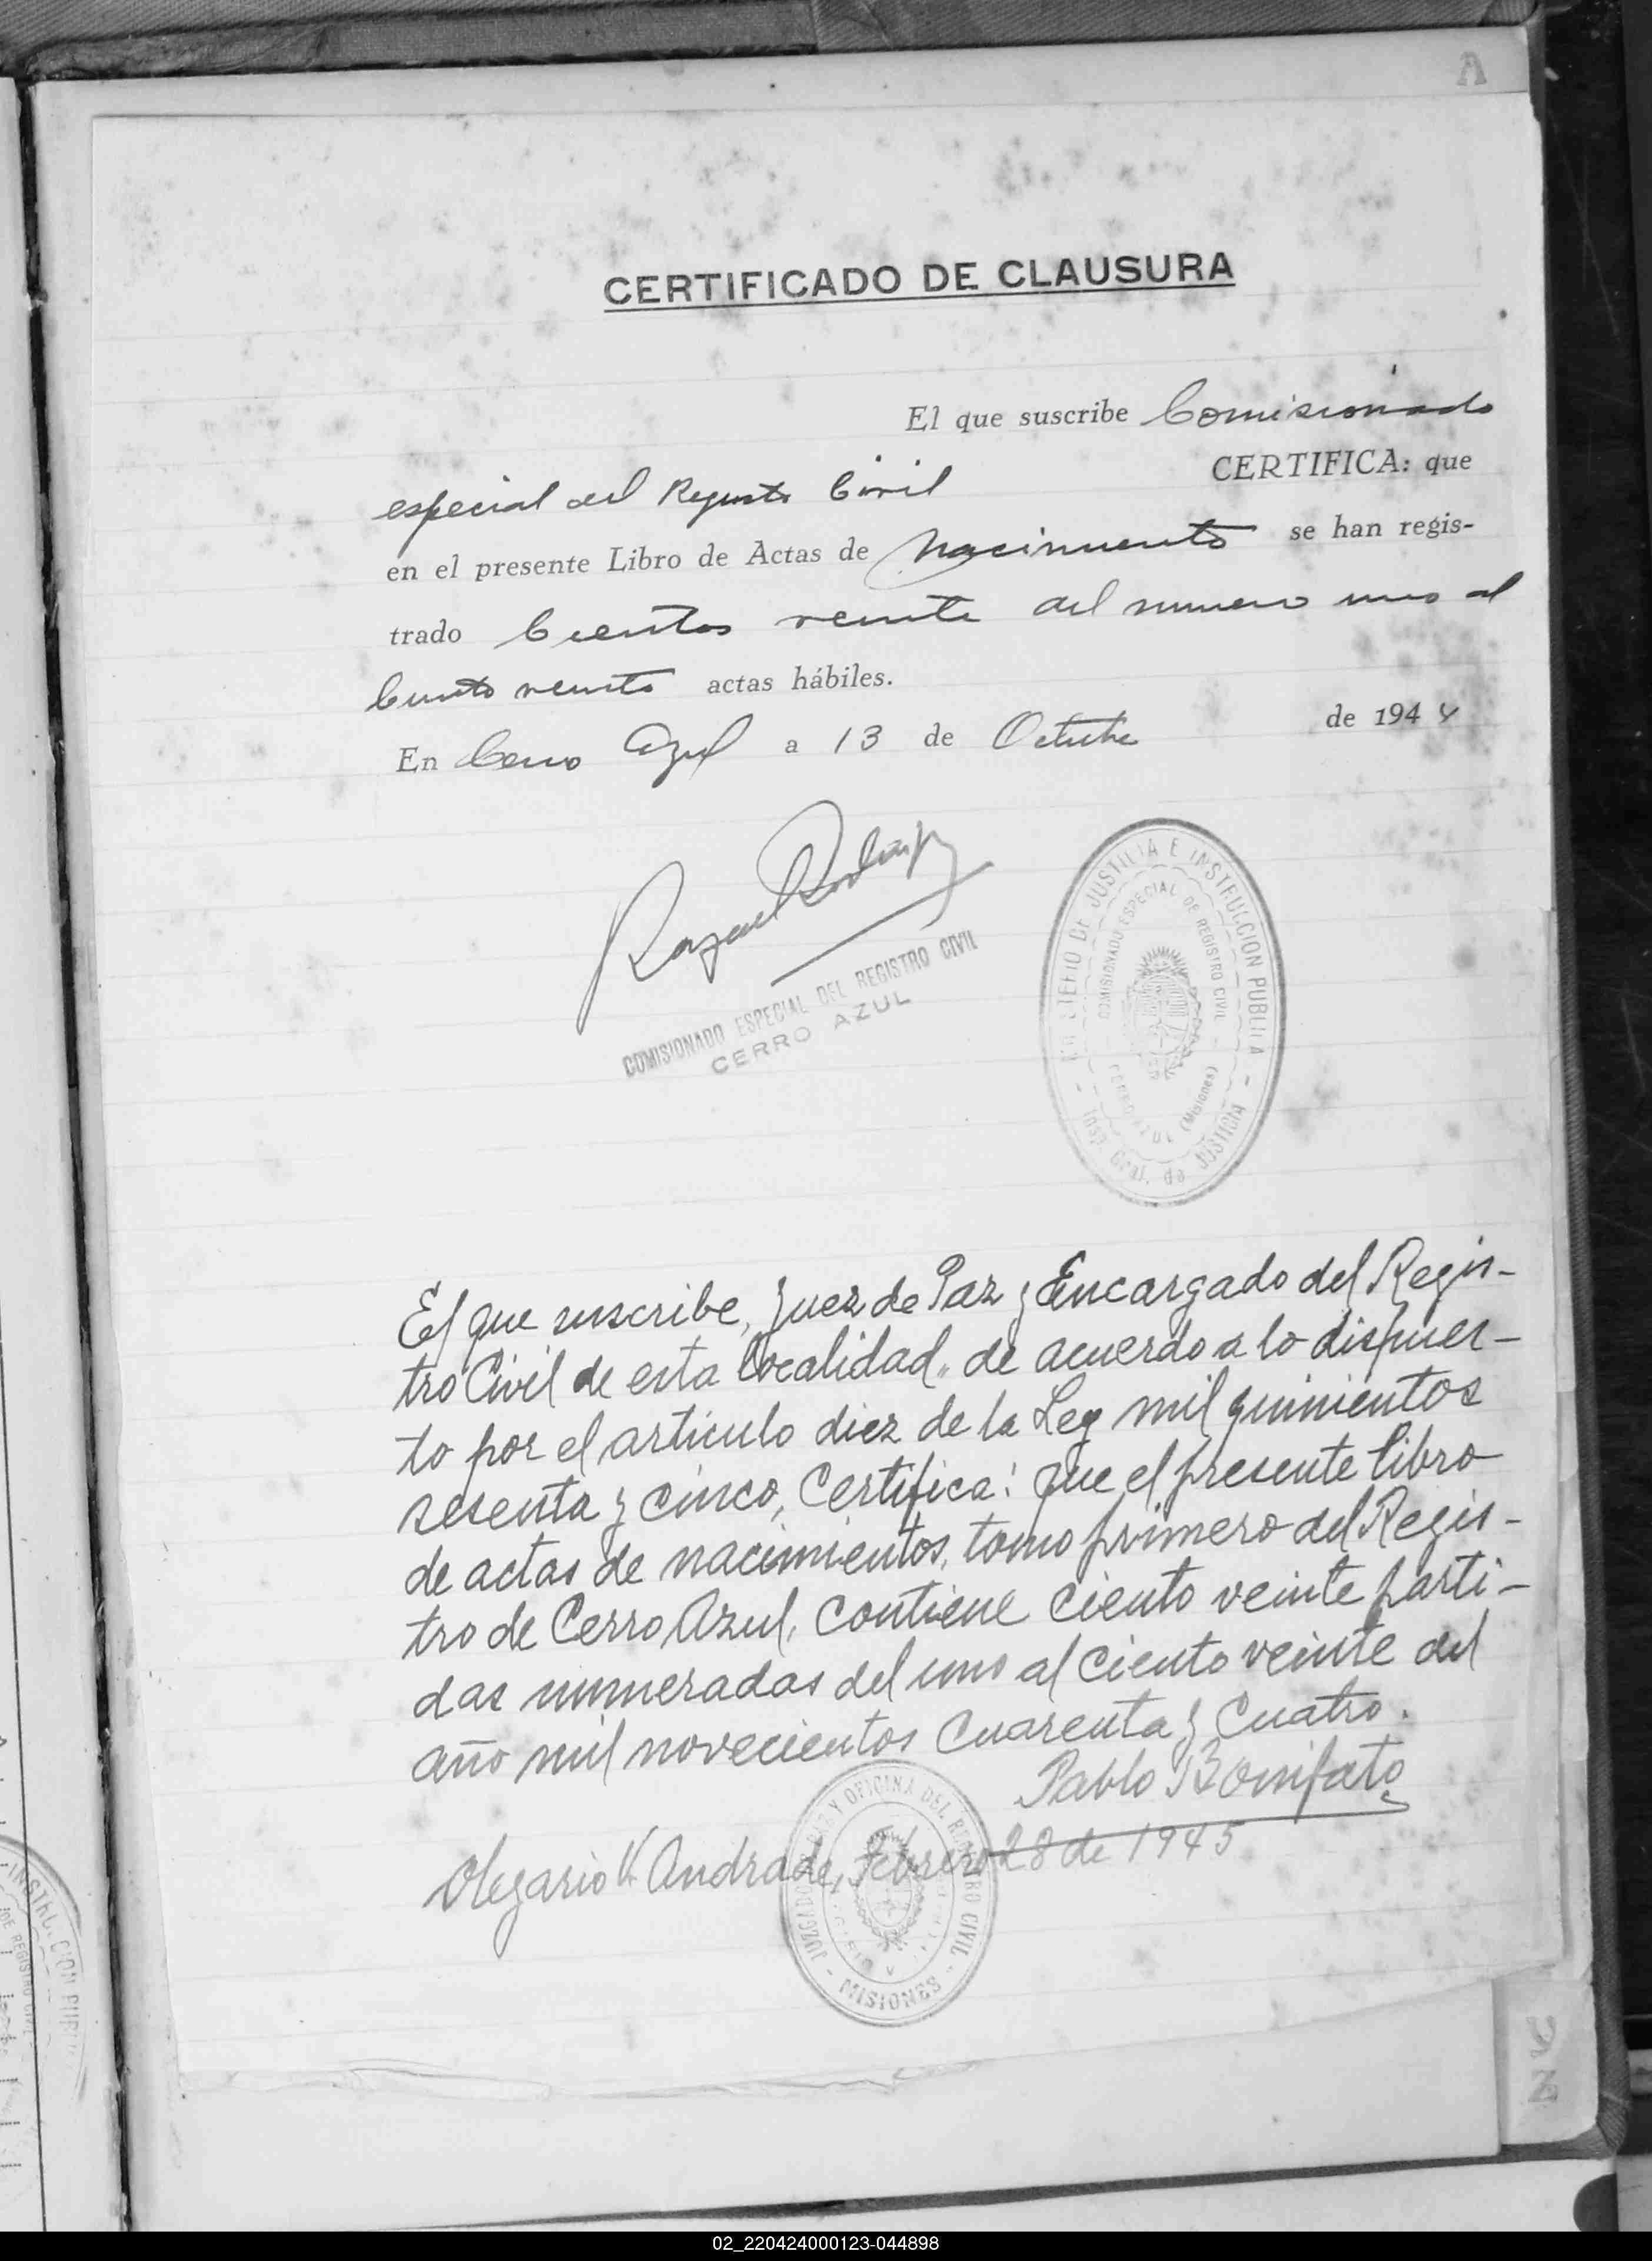 A
CERTIFICADO DE CLAUSURA
El que suscribe Comisionado
especial del Registro Civil CERTIFICA: que
en el presente Libro de Actas de Nacimiento se han regis-
trado Cientos veinte del numero uno al
Ciento veinte actas hábiles.
En Cerro Azul a 13 de Octubre de 1944
COMISIONADO ESPECIAL DEL REGISTRO CIVIL
CERRO AZUL
MINISTERIO DE JUSTICIA E INSTRUCCION PUBLICA
COMISIONADO ESPECIAL DE REGISTRO CIVIL
CERRO AZUL (Misiones)
Insp. Gral. de JUSTICIA
El que suscribe, Juez de Paz y Encargado del Regis-
tro Civil de esta localidad, de acuerdo a lo dispues-
to por el artículo diez de la Ley mil quinientos
sesenta y cinco, Certifica: que el presente libro
de actas de nacimientos, tomo primero del Regis-
tro de Cerro Azul, contiene ciento veinte parti-
das numeradas del uno al ciento veinte del
año mil novecientos cuarenta y cuatro.
Pablo Bonifato
Olegario V. Andrade, Febrero 28 de 1945
JUZGADO DE PAZ Y OFICINA DEL REGISTRO CIVIL
- MISIONES -
INSTRUCCION PUBLICA
DE REGISTRO CIVIL
02_220424000123-044898